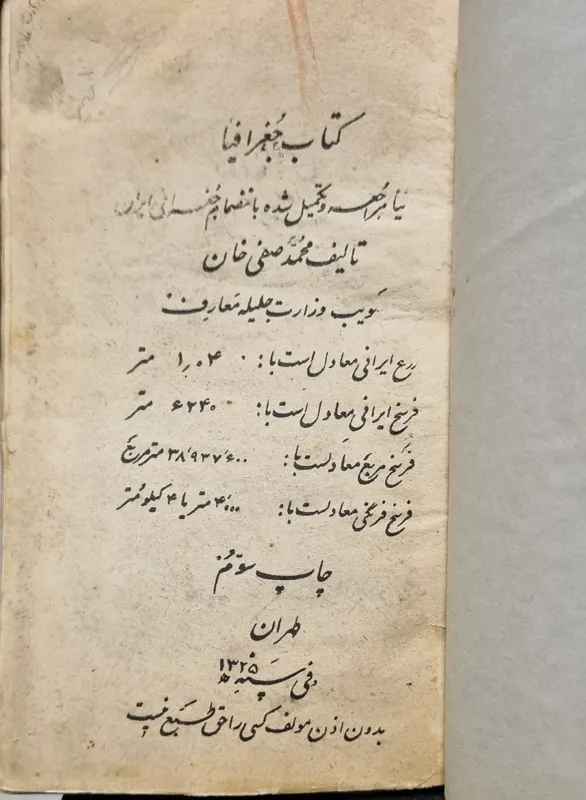 کتاب جغرافیا
مراجعه و تکمیل شده بانضمام جغرافیای ایران
تالیف محمد صفی خان
وزارت جلیله معارف
ذرع ایرانی معادل است با: ۱٫۰۴۰ متر
فرسخ ایرانی معادل است با: ۶۲۴۰ متر
فرسخ مربع معادلست با: ۳۸٬۹۳۷٬۶۰۰ متر مربع
فرسخ فرنگی معادلست با: ۴٬۰۰۰ متر یا ۴ کیلومتر
چاپ سوم
طهران
فی سنه ۱۳۲۵
بدون اذن مولف کسی را حق طبع نیست